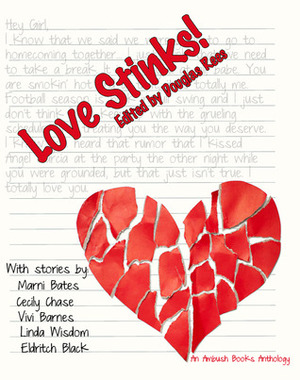 Hey Girl,
I know that we said we were going to go to
homecoming together
need
to take a break. It
babe. You
are smokin' hot
totally me.
Football season is
swing and I just
don't think
with the grueling
schedule
treating you the way you deserve.
I know
heard that rumor that I kissed
Angel
at the party the other night while
you were grounded, but that just isn't true. I
totally love you.
Love Stinks!
Edited by Douglas Rees
With stories by:
Marni Bates
Cecily Chase
Vivi Barnes
Linda Wisdom
Eldritch Black
An Ambush Books Anthology